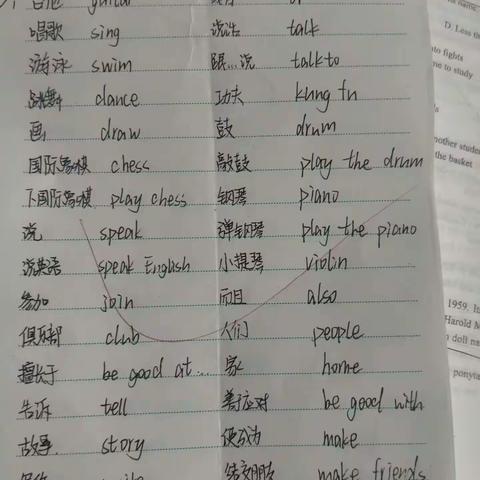 吉他 guitar
唱歌 sing 说话 talk
游泳 swim 跟...说 talk to
跳舞 dance 功夫 kung fu
画 draw 鼓 drum
国际象棋 chess 敲鼓 play the drum
下国际象棋 play chess 钢琴 piano
说 speak 弹钢琴 play the piano
说英语 speak English 小提琴 violin
参加 join 而且 also
俱乐部 club 人们 people
擅长于 be good at... 家 home
告诉 tell 善于应对 be good with
故事 story 使成为 make
结交朋友 make friends
D. Less t
to fights
me to study
nother studen
the basket
1959. It
Harold M
n doll na
ponyta